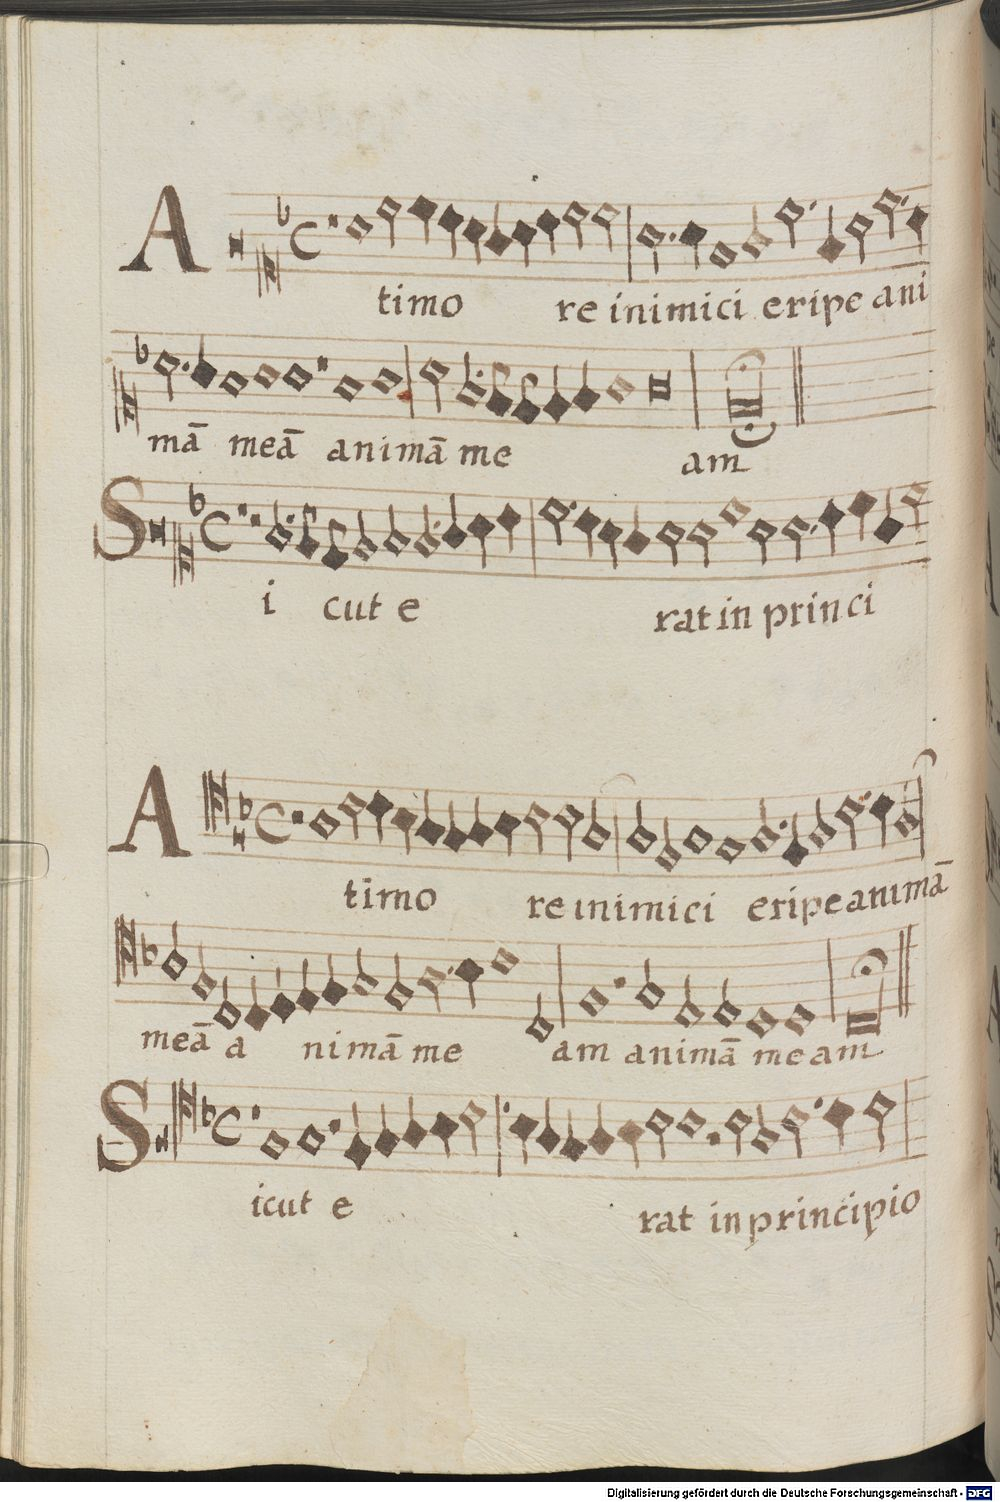 A timo re inimici eripe ani
mā meā animā me am
S i cut e rat in princi
A timo re inimici eripe animā
meā a nimā me am animā meam
S icut e rat in principio
Digitalisierung gefördert durch die Deutsche Forschungsgemeinschaft - DFG